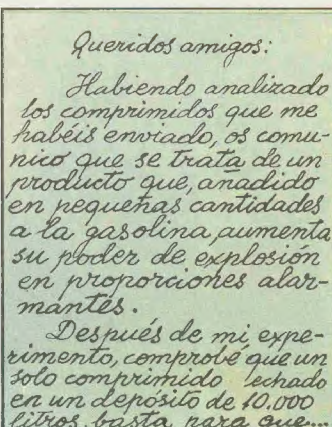 Queridos amigos:
Habiendo analizado
los comprimidos que me
habéis enviado, os comu-
nico que se trata de un
producto que, añadido
en pequeñas cantidades
a la gasolina, aumenta
su poder de explosión
en proporciones alar-
mantes.
Después de mi expe-
rimento, comprobé que un
solo comprimido echado
en un depósito de 10.000
litros, basta para que...